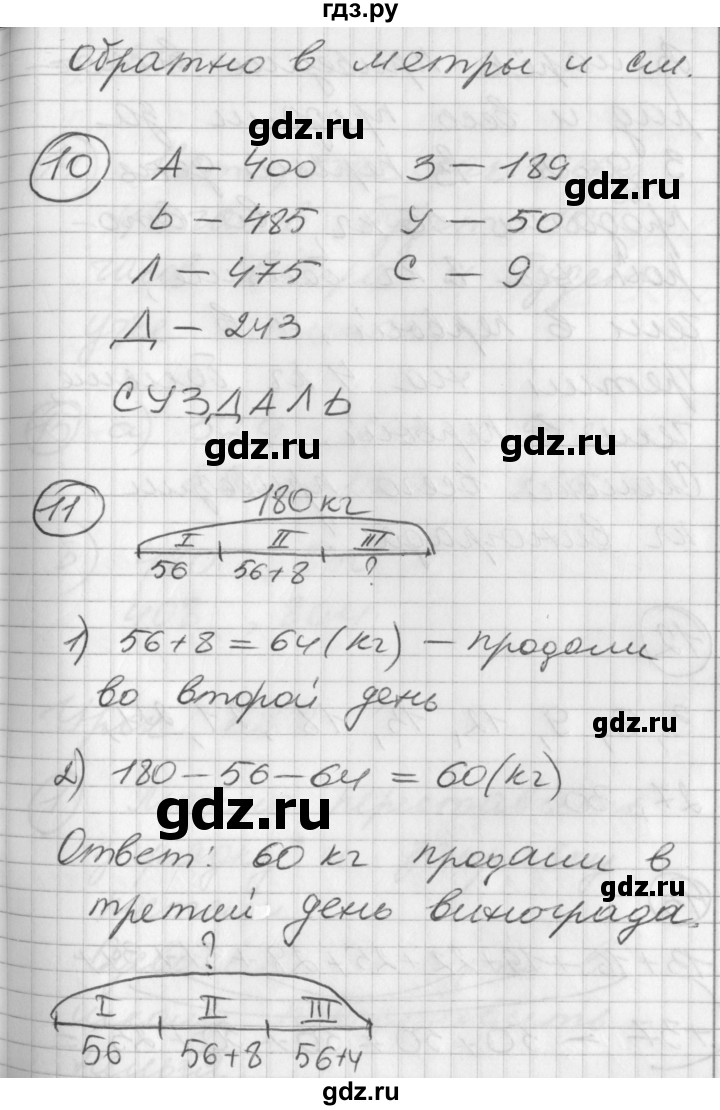 гдз.ру
обратно в метры и см.
gdz.ru
10 А – 400 З – 189
gdz.ru
Ь – 485 У – 50
Л – 475 С – 9
Д – 243
СУЗДАЛЬ
gdz.ru gdz.ru
11 180 кг
I II III
56 56+8 ?
1) 56+8=64(кг) – продали
во второй день
gdz.ru
2) 180–56–64=60(кг)
gdz.ru
Ответ: 60 кг продали в
gdz.ru
третий день винограда.
?
I II III
56 56+8 56+4
gdz.ru
gdz.ru